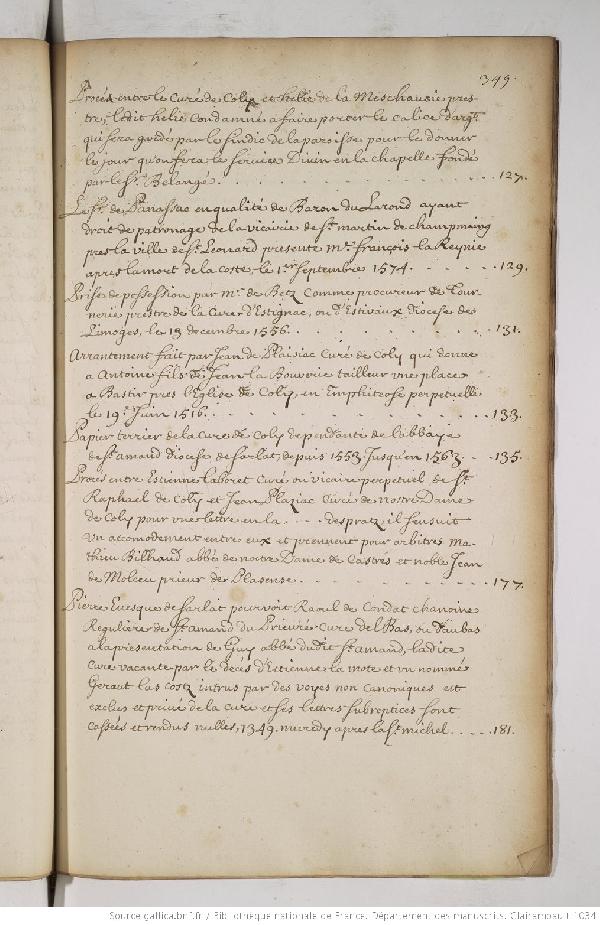 349.
Procés entre le Curé de Coly et helie de la Meschausie pres
tre, ledit helie Condamné a faire porter le calice d'argt.
qui sera gardé par le sindic de la paroisse pour le donner
le jour qu'on fera le service Divin en la chapelle fondé
par le Sr. Belangé . . . . . . . 127.
Le Sr. de Panassac en qualité de Baron du Larond ayant
droit de patronage de la vicairie de St. martin de champmaing
pres la ville de St. Leonard presente Mre. françois la Reynie
apres la mort de la coste, le 1er septembre 1574. . . . . 129.
Prise de possession par Mre. de Betz Comme procureur de Tour-
nerie prestre de la Cure d'Estignac, ou d'Estivaux diocese de
Limoges, le 13 decembre 1556. . . . . . . 131.
Arrantement fait par Jean de Plaisiac Curé de Coly qui donne
a Antoine fils de Jean la Bouverie tailleur une place
a Bastir pres l'Eglise de Coly, en Emphiteose perpetuelle
le 19e. Juin 1516. . . . . . . 133.
Papier terrier de la Cure de Coly dependante de l'abbaye
de St. amand diocese de Sarlat, depuis 1553 Jusqu'en 1563. . . 135.
Procés entre Estienne laboret Curé ou vicaire perpetuel de St.
Raphael de Coly et Jean Plaziac Curé de nostre Dame
de Coly pour une lettre en la . . . . despratz il sensuit
un accomodement entre eux et prennent pour arbitres ma-
thieu Bilhaud abbé de nostre Dame de Castrés et noble Jean
de Molceu prieur de Plasense. . . . . . . 177.
Pierre Evesque de Sarlat pourvoit Raoul de Condat chanoine
Regulier de St. amand du Prieuré Cure del Bas, ou d'aubas
a la presentation de Guy abbé dudit St. amand, ladite
Cure vacante par le deces d'Etienne la mote et un nommé
Geraut las Costz intrus par des voyes non Canoniques est
exclus et privé de la cure et ses lettres subreptices sont
cassées et rendus nulles, 1349. mecredy apres la St. michel. . . . . 181.
Source gallica.bnf.fr / Bibliothèque nationale de France. Département des manuscrits. Clairambault 1034